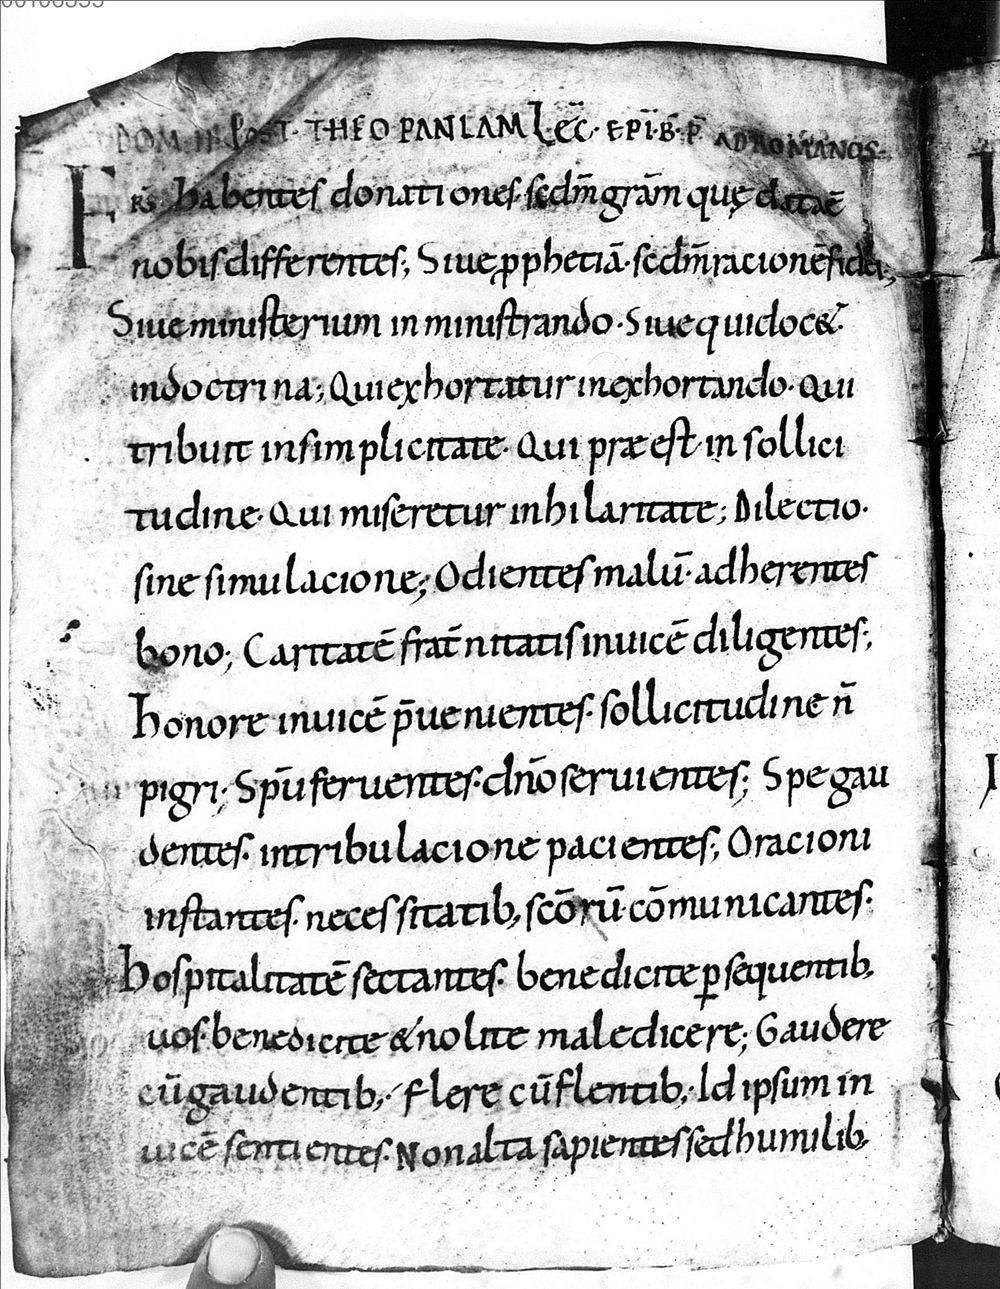 DOM · III · POST · THEOPANIAM LEC̄ · EPI · B · P̄ AD ROMANOS ·
FRS̄ · habentes donationes · scdm̄ grām quę datāē
nobis differentes; Siue ꝓphetiā · scdm̄ racionē fidei;
Siue ministerium in ministrando · Siue qui docet ·
in doctrina; Qui exhortatur in exhortando · Qui
tribuit in simplicitate · Qui præest in sollici
tudine · Qui miseretur in hilaritate; Dilectio ·
sine simulacione; Odientes malū · adherentes
bono; Caritatē frat̄nitatis inuicē diligentes;
honore inuicē p̄uenientes · sollicitudine n̄
pigri; Sp̄u feruentes · dn̄o seruientes; Spe gau
dentes · in tribulacione pacientes; Oracioni
instantes · necessitatib; scōrū cōmunicantes ·
hospitalitatē sectantes · benedicite ꝑsequentib;
uos · benedicite & nolite maledicere; Gaudere
cū gaudentib; flere cū flentib; Id ipsum in
uicē sentientes · Non alta sapientes sed humilib;